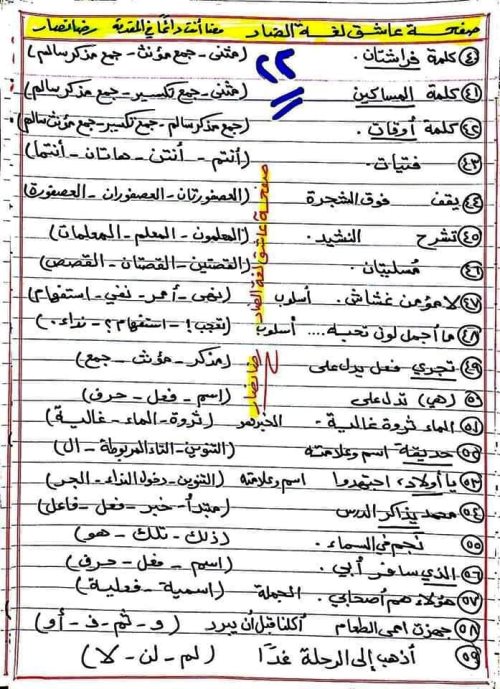 صفحة عاشق لغة الضاد معنا أنت دائما في المقدمة رضا نصار
٢٢
٤٠ كلمة فراشتان . (مثنى - جمع مؤنث - جمع مذكر سالم)
٤١ كلمة المساكين (مثنى - جمع تكسير - جمع مذكر سالم)
٤٢ كلمة أوقات . (جمع مذكر سالم - جمع تكسير - جمع مؤنث سالم)
٤٣ فتيات . (أنتم - أنتن - هاتان - أنتما)
٤٤ يقف فوق الشجرة (العصفورتان - العصفوران - العصفورة)
٤٥ تشرح النشيد . (المعلمون - المعلم - المعلمات)
٤٦ مسليتان . (القصتين - القصتان - القصص)
٤٧ لا مؤمن غشاش . أسلوب (نهى - أمر - نفي - استفهام)
٤٨ ما أجمل لون تحبه .... أسلوب (تعجب ! - استفهام ؟ - نداء .)
٤٩ تجري فعل يدل على (مذكر - مؤنث - جمع)
٥٠ (هي) تدل على (اسم - فعل - حرف)
٥١ الماء ثروة غالية . الخبر هو (ثروة - الماء - غالية)
٥٢ حديقة اسم وعلامته (التنوين - التاء المربوطة - ال)
٥٣ يا أولاد ، اجتهدوا اسم وعلامته (التنوين - دخول النداء - الجر)
٥٤ محمد يذاكر الدرس (مبتدأ - خبر - فعل - فاعل)
٥٥ نجم في السماء . (ذلك - تلك - هو)
٥٦ الذي سافر أبي . (اسم - فعل - حرف)
٥٧ هؤلاء هم أصحابي . الجملة (اسمية - فعلية)
٥٨ جهزت امى الطعام أكلنا قبل أن يبرد (و - ثم - ف - أو)
٥٩ أذهب إلى الرحلة غدًا (لم - لن - لا)
صفحة عاشق لغة الضاد
رضا نصار